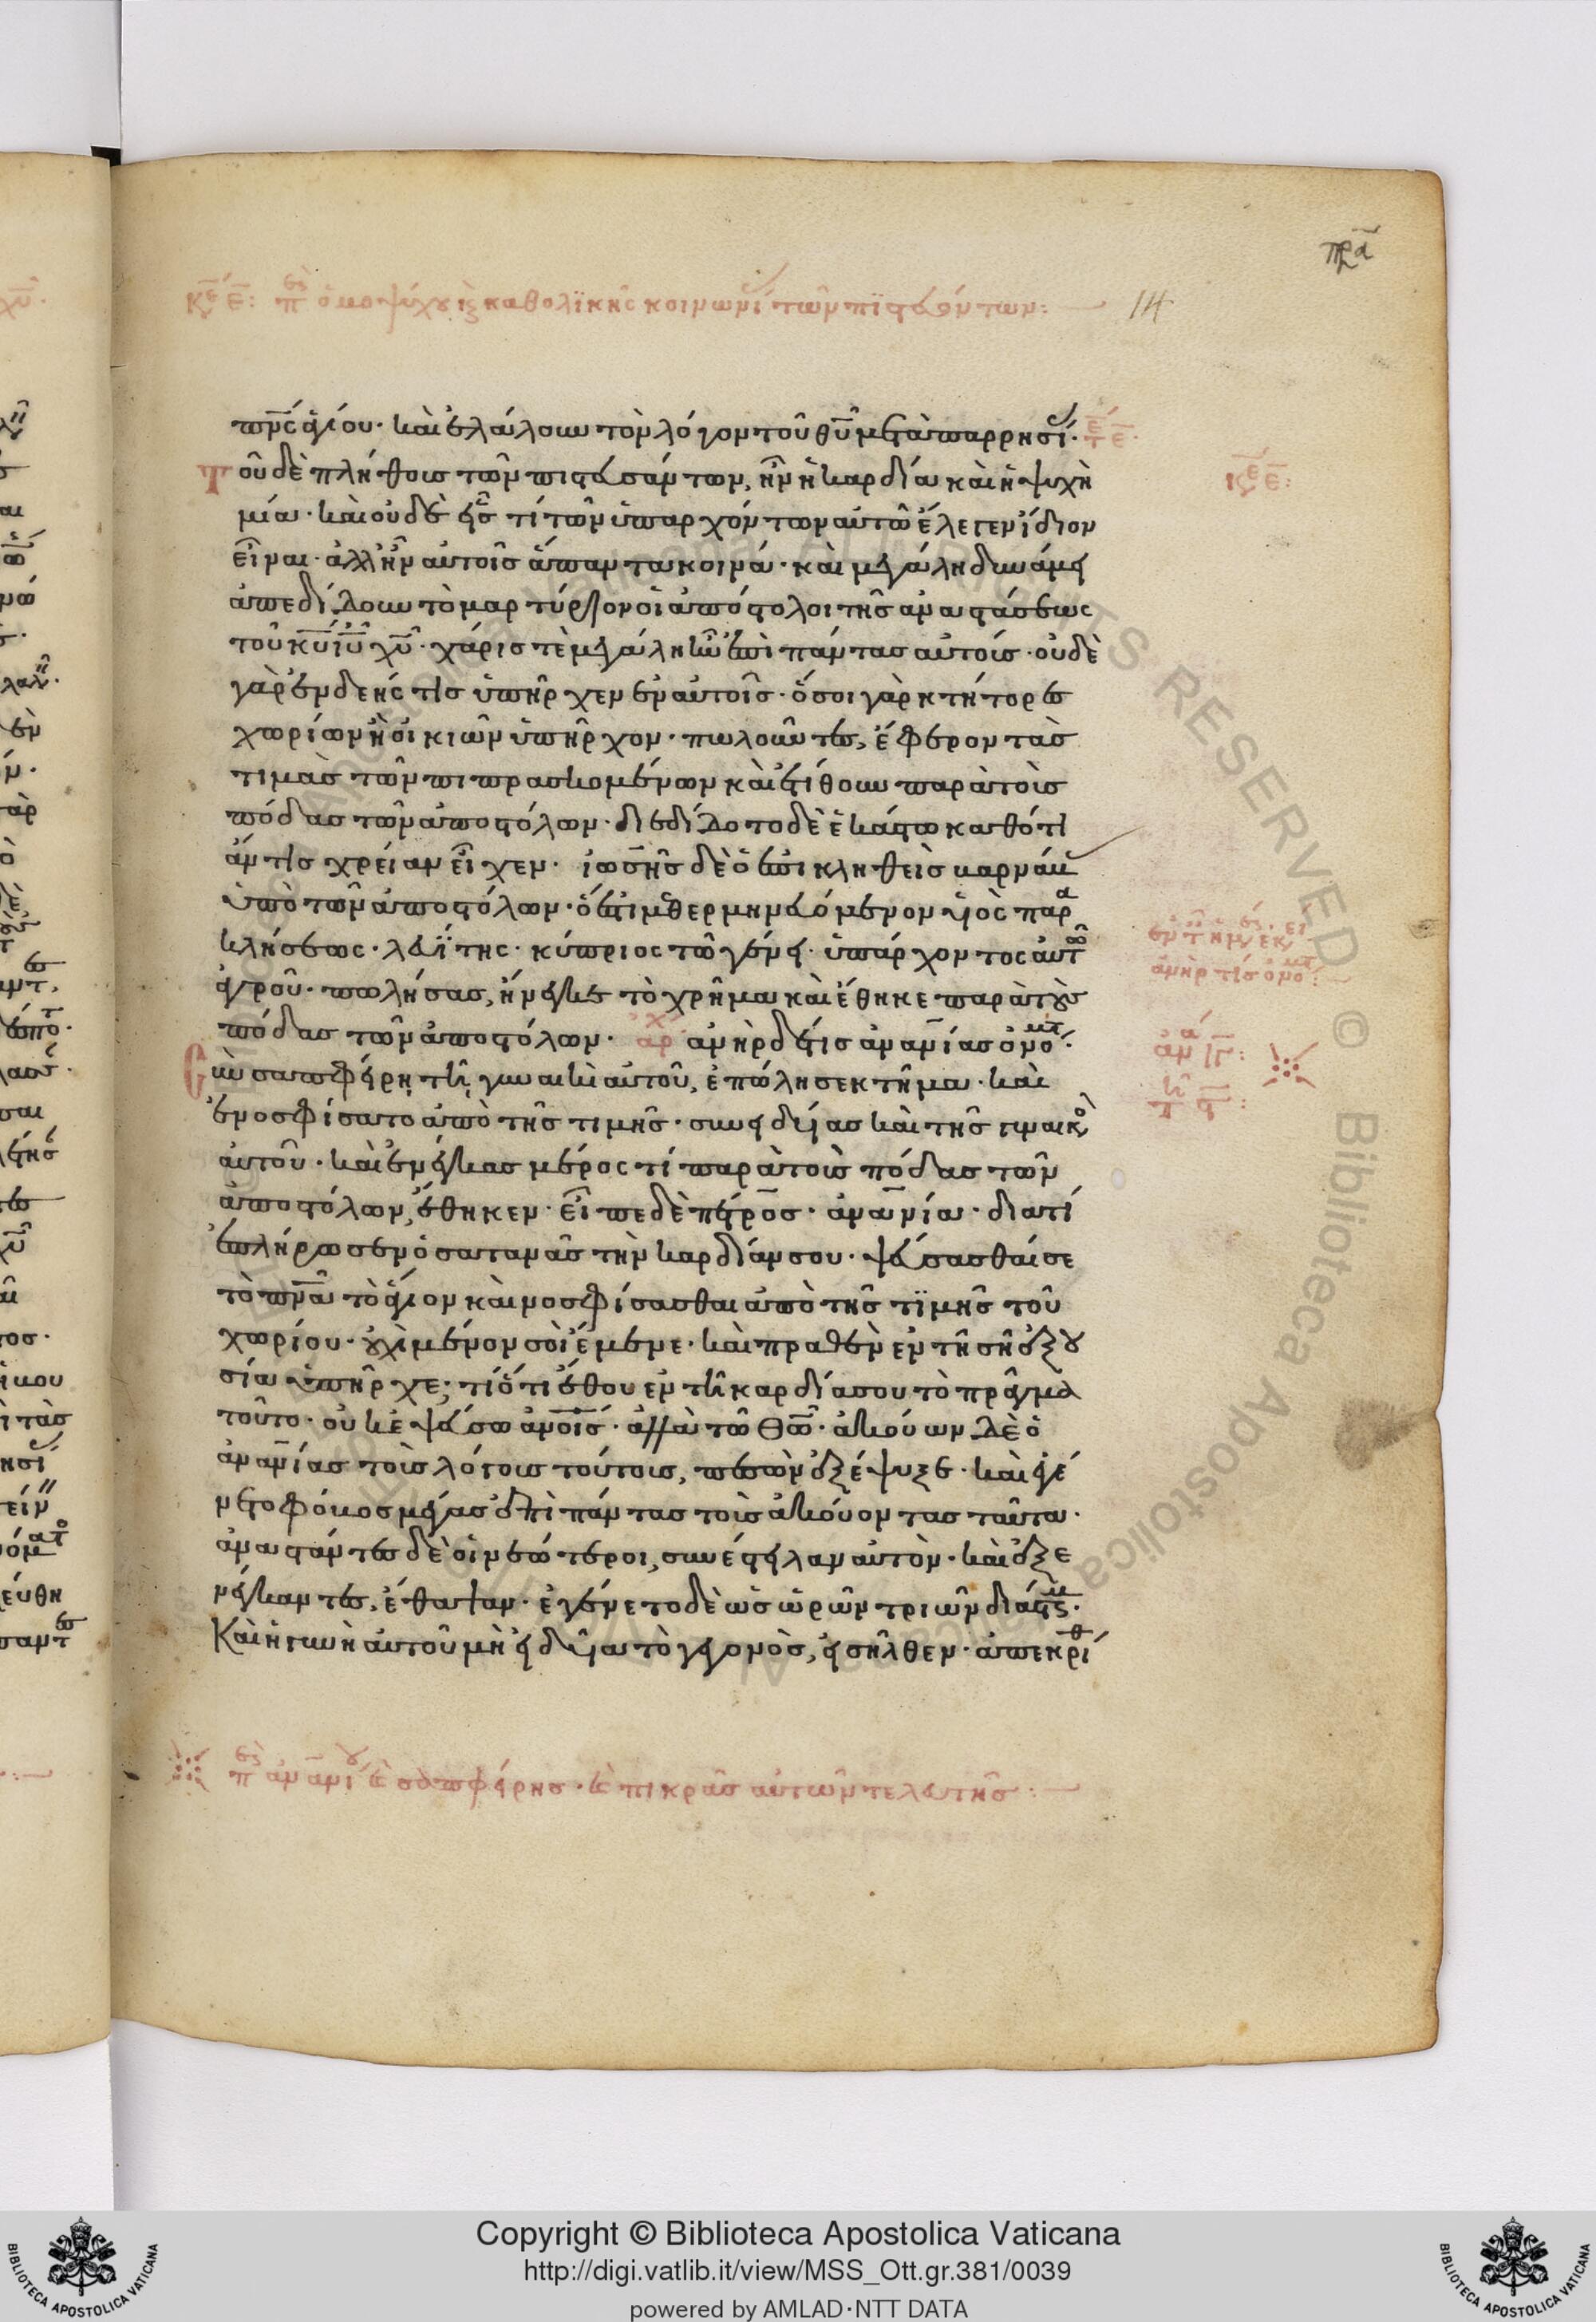 κε ε: πε ὁμοψύχου ἐξ καθολϊκῆς κοινωνί τῶν πϊστευόντων:
14
πνς ἁγίου· καὶ ἐλάλουν τὸν λόγον τοῦ θυ μετὰ παρρησί· τε ε·
Τοῦ δὲ πλήθους τῶν πιστευσάντων, ἦν ἡ καρδία καὶ ἡ ψυχὴ
κε ε:
μία· καὶ οὐδὲ εἷς τί τῶν ὑπαρχόντων αὐτῶ ἔλεγεν ἴδιον
εἶναι· ἀλλ ἦν αὐτοῖς ἅπαντα κοινά· καὶ μεγάλη δυνάμει
ἀπεδίδουν τὸ μαρτύριον οἱ ἀπόστολοι τῆς ἀναστάσεως
τοῦ κυ ιυ χυ· χάρις τὲ μεγάλη ἦν ἐπὶ πάντας αὐτούς· οὐδὲ
γὰρ ἐνδεής τις ὑπῆρχεν ἐν αὐτοῖς· ὅσοι γὰρ κτήτορες
χωρίων ἢ οἰκιῶν ὑπῆρχον· πωλοῦντες, ἔφερον τὰς
τιμὰς τῶν πιπρασκομένων καὶ ἐτίθουν παρὰ τοὺς
πόδας τῶν ἀποστόλων· διεδίδοτο δὲ ἑκάστω καθότι
ἄν τις χρείαν εἶχεν· ἰωσῆς δὲ ὁ ἐπικληθεὶς βαρνάβ
ὑπὸ τῶν ἀποστόλων· ὅ ἐστι μεθερμηνευόμενον υἱὸς παρα
κλήσεως· λευΐτης· κύπριος τῶ γένει· ὑπάρχοντος αὐτῶ
ἀγροῦ· πωλήσας, ἤνεγκε τὸ χρῆμα καὶ ἔθηκε παρὰ τοὺς
ἀνήρ τίς ὀνομτ:
πόδας τῶν ἀποστόλων· αρχ ἀνὴρ δέ τις ἀνανίας ὀνομτ·
σὺν σαπφείρη τῆ γυναικὶ αὐτοῦ, ἐπώλησε κτῆμα· καὶ
ἐνοσφίσατο ἀπὸ τῆς τιμῆς· συνειδυίας καὶ τῆς γυναικὸ
αὐτοῦ· καὶ ἐνέγκας μέρος τί παρὰ τοὺς πόδας τῶν
ἀποστόλων, ἔθηκεν· εἶπε δὲ πέτρος· ἀνανία· διατί
ἐπλήρωσεν ὁ σατανᾶς τὴν καρδίαν σου· ψεύσασθαί σε
τὸ πνα τὸ ἅγιον καὶ νοσφίσασθαι ἀπὸ τῆς τϊμῆς τοῦ
χωρίου· οὐχὶ μένον σοὶ ἔμενε· καὶ πραθὲν ἐν τῆ σῆ ἐξου
σία ὑπῆρχε; τί ὅτι ἔθου ἐν τῆ καρδία σου τὸ πρᾶγμα
τοῦτο· οὐκ ἐψεύσω ἀνοις· ἀλλὰ τῶ θω· ἀκούων δὲ ὁ
ἀνανίας τοὺς λόγους τούτους, πεσὼν ἐξέψυξε· καὶ ἐγέ
νετο φόβος μέγας ἐπὶ πάντας τοὺς ἀκούοντας ταῦτα·
ἀναστάντες δὲ οἱ νεώτεροι, συνέστειλαν αὐτὸν· καὶ ἐξε
νέγκαντες, ἔθαψαν· ἐγένετο δὲ ὡς ὡρῶν τριῶν διάστημ·
Καὶ ἡ γυνὴ αὐτοῦ μὴ εἰδυῖα τὸ γεγονὸς, εἰσῆλθεν· ἀπεκρίθ
πε ἀνανίου καὶ σαπφείρης· καὶ πικρᾶς αὐτῶν τελευτῆς:
Copyright © Biblioteca Apostolica Vaticana
http://digi.vatlib.it/view/MSS_Ott.gr.381/0039
powered by AMLAD·NTT DATA